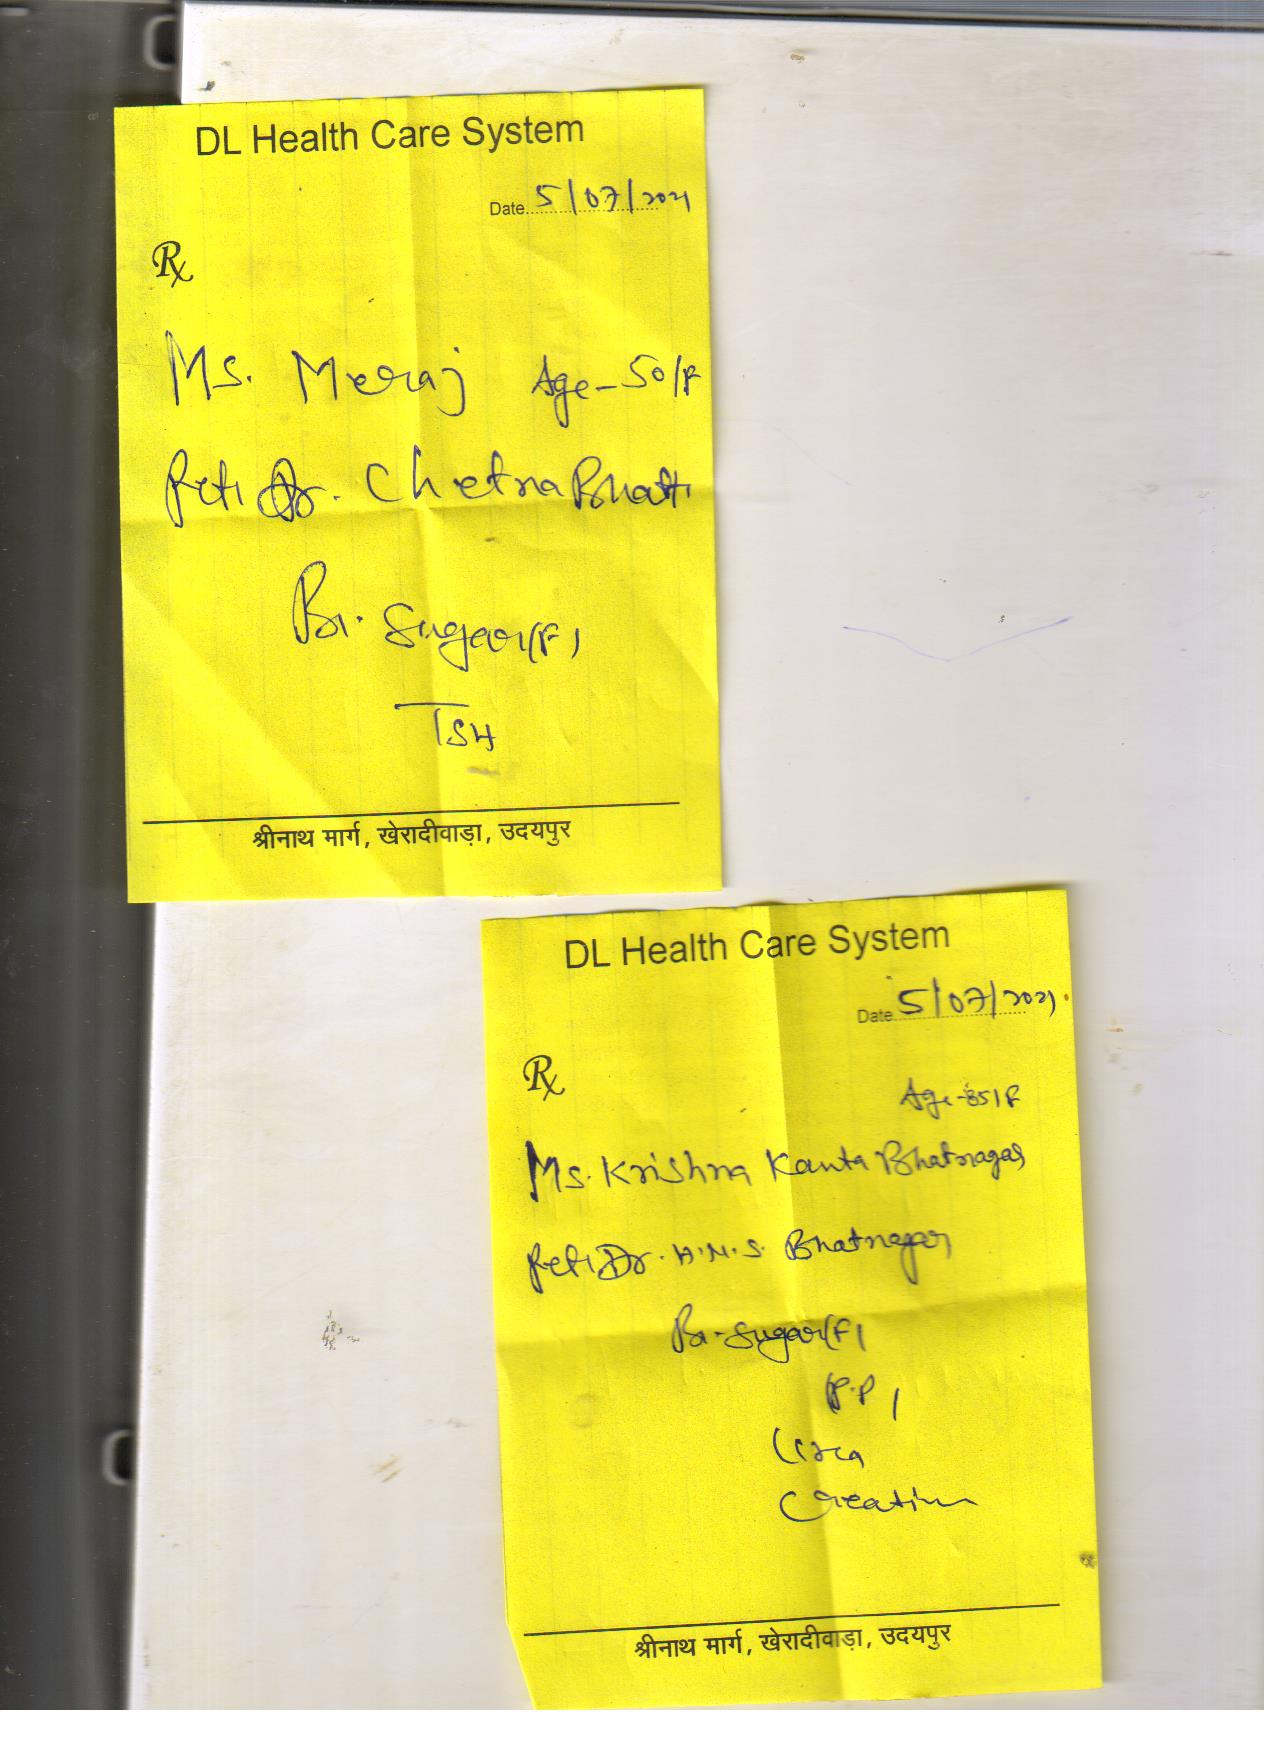 DL Health Care System
Date 5/07/2021
Rx
Ms. Meraj Age-50/F
Ref. Dr. Chetna Bhatti
Bl. Sugar(F)
TSH
श्रीनाथ मार्ग, खेरादीवाड़ा, उदयपुर
DL Health Care System
Date 5/07/2021
Rx
Age-85/F
Ms. Krishna Kanta Bhatnagar
Ref. Dr. H.N.S. Bhatnagar
Bl-Sugar(F)
(P.P)
Urea
Creatinine
श्रीनाथ मार्ग, खेरादीवाड़ा, उदयपुर